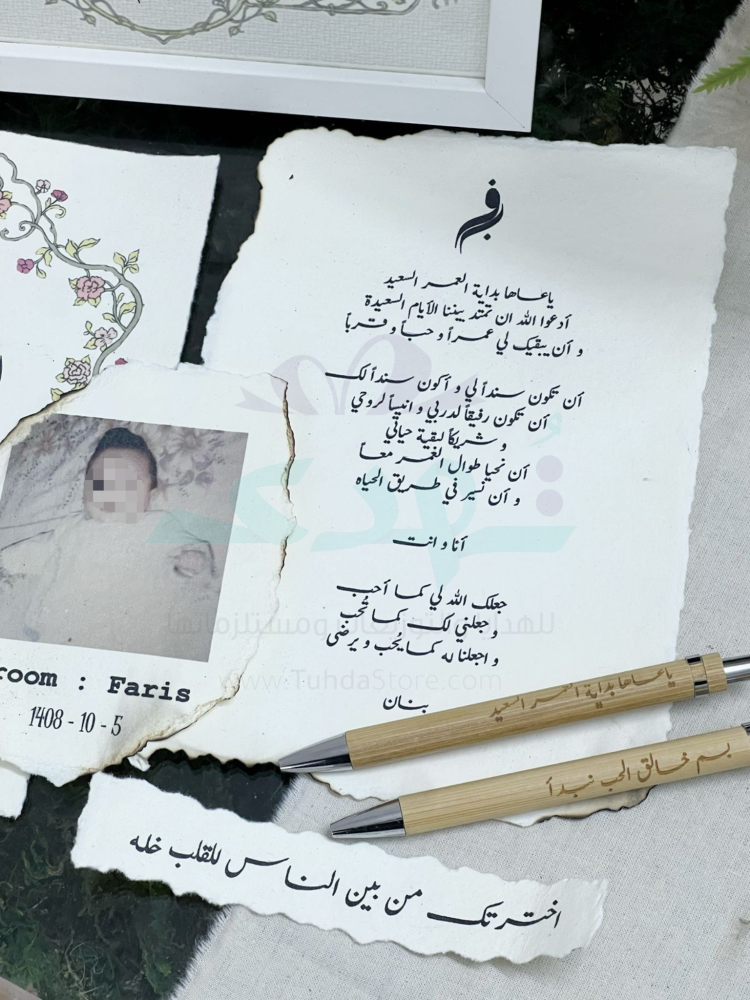 ياعساها بداية العمر السعيد
أدعوا الله ان تمتد بيننا الأيام السعيدة
و أن يبقيك لي عمراً و حباً و قرباً
أن تكون سنداً لي و أكون سنداً لك
أن تكون رفيقاً لدربي و انيساً لروحي
و شريكاً لبقية حياتي
أن نحيا طوال العُمر معاً
و أن نسير في طريق الحياه
أنا و انت
جعلك الله لي كما أحب
و جعلني لك كما تُحب
و اجعلنا له كما يُحب و يرضى
بنان
room : Faris
1408 - 10 - 5
ياعساها بداية العمر السعيد
بسم خالق الحب نبدأ
اخترتك من بين الناس للقلب خله
تُهدى
للهدايا والتوزيعات ومستلزماتها
www.TuhdaStore.com